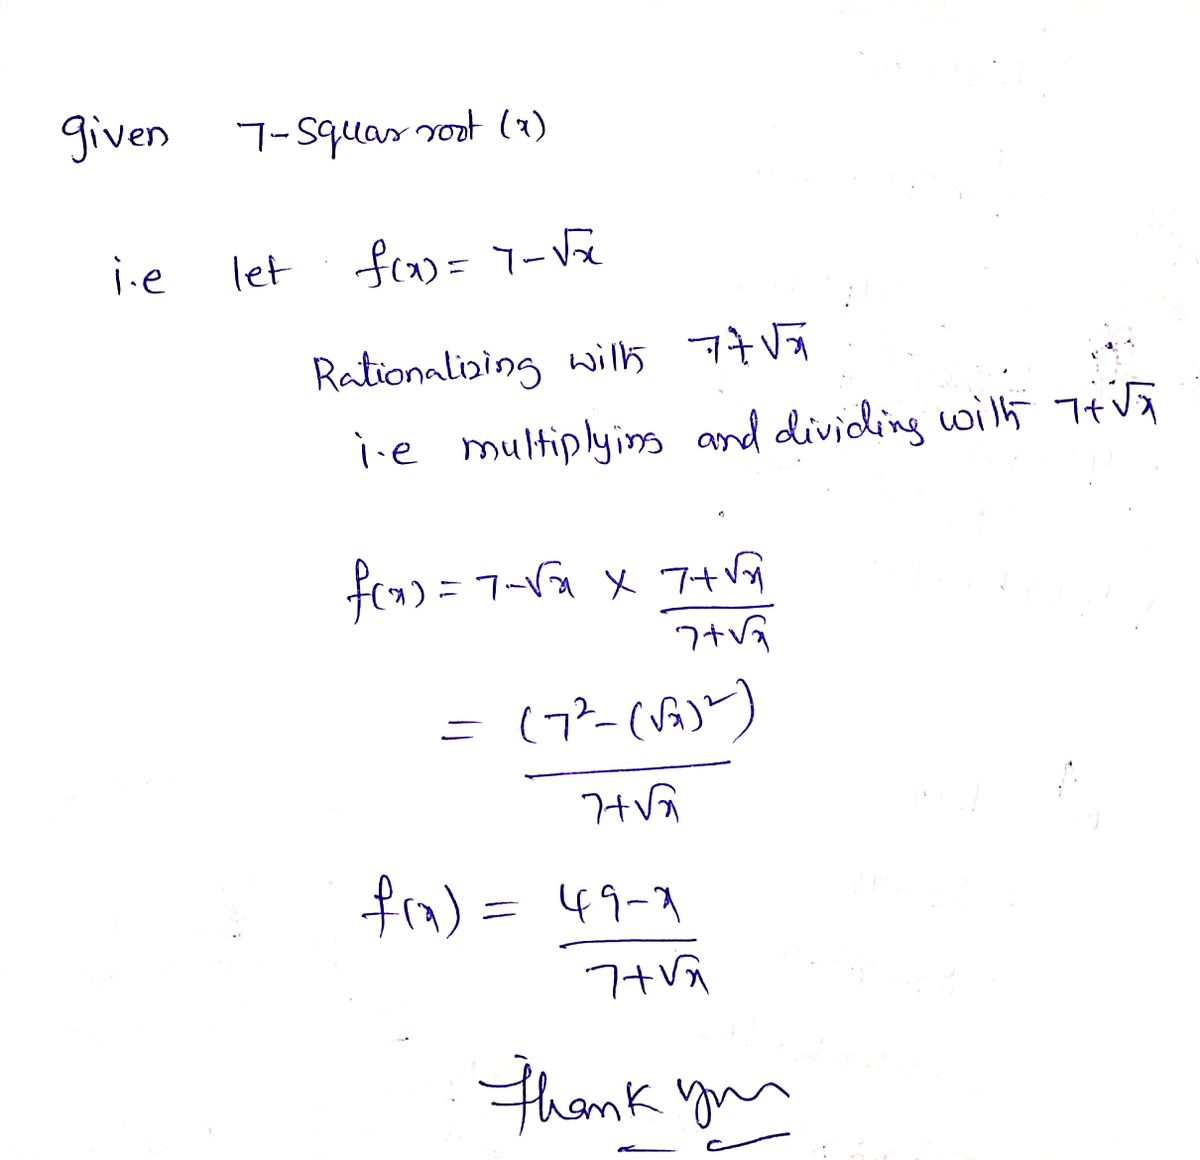 given 7-Squar root (x)
i.e let f(x) = 7-√x
Rationalizing with 7+√x
i.e multiplying and dividing with 7+√x
f(x) = 7-√x × 7+√x
7+√x
= (7²-(√x)²)
7+√x
f(x) = 49-x
7+√x
Thank you